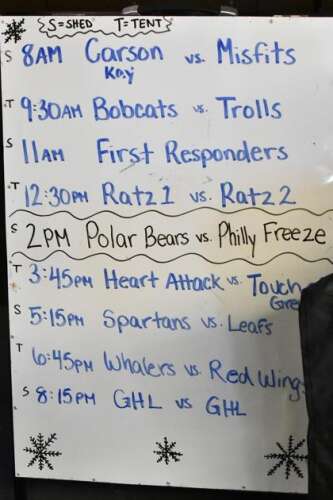 S=SHED T=TENT
S 8AM Carson vs. Misfits
Kray
T 9:30AM Bobcats vs. Trolls
S 11AM First Responders
T 12:30PM Ratz 1 vs. Ratz 2
S 2PM Polar Bears vs. Philly Freeze
T 3:45PM Heart Attack vs. Touch
Gre
S 5:15PM Spartans vs. Leafs
T 6:45PM Whalers vs. Red Wings
S 8:15PM GHL vs GHL